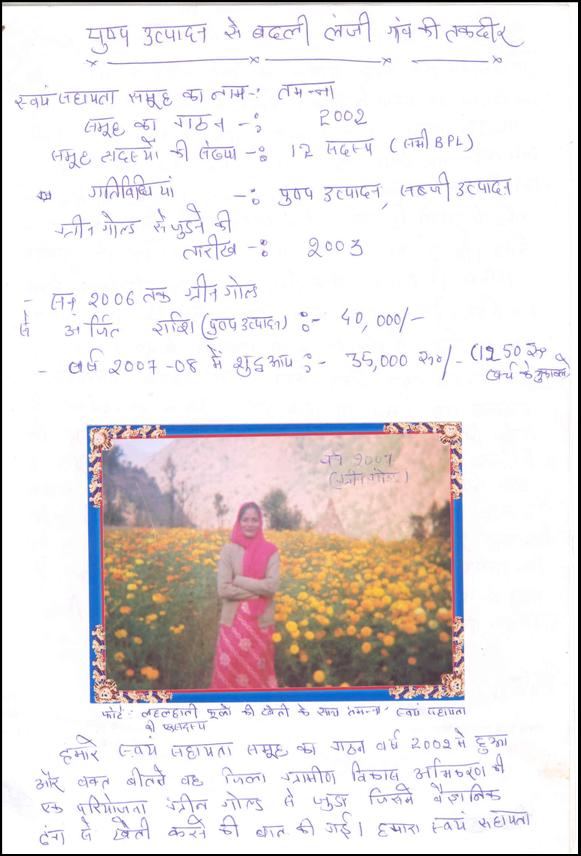 पुष्प उत्पादन से बदली लंजी गांव की तकदीर
स्वयं सहायता समूह का नाम -: तमन्ना
समूह का गठन -: 2002
समूह सदस्यों की संख्या -: 12 सदस्य (सभी BPL)
गतिविधियां -: पुष्प उत्पादन, सब्जी उत्पादन
ग्रीन गोल्ड से जुडने की
तारीख -: 2003
- सन् 2006 तक ग्रीन गोल्ड
से अर्जित राशि (पुष्प उत्पादन) :- 40,000/-
- वर्ष 2007-08 में शुद्ध आय :- 35,000 रू०/- (1250 रू०
खर्च के मुकाबले
वर्ष 2007
(ग्रीन गोल्ड)
फोटो: लहलहाती फूलों की खेती के साथ तमन्ना स्वयं सहायता
की सदस्य
हमारे स्वयं सहायता समूह का गठन वर्ष 2002 में हुआ
और वक्त बीतते वह जिला ग्रामीण विकास अभिकरण की
एक परियोजना ग्रीन गोल्ड से जुडा जिसमे वैज्ञानिक
ढंग से खेती करने की बात की गई। हमारा स्वयं सहायता